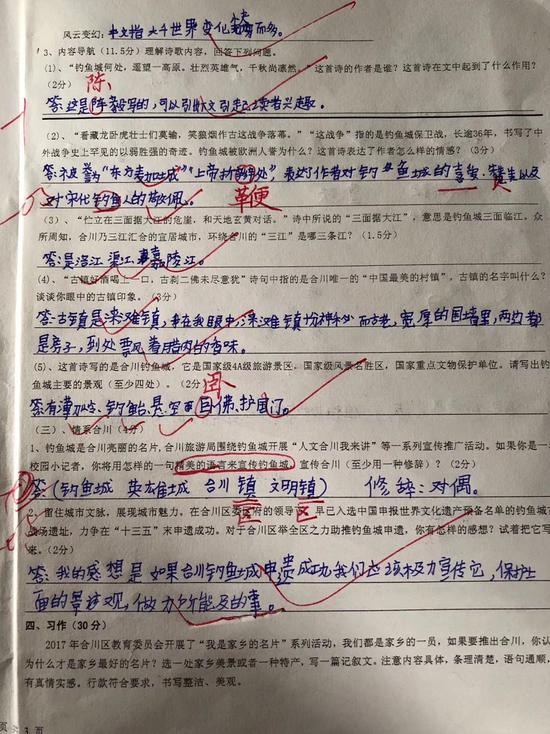 风云变幻：本文指大千世界变化多端而多。
3、内容导航（11.5分）理解诗歌内容，回答下列问题。
（1）、“钓鱼城何处，遥望一高原。壮烈英雄气，千秋尚凛然。”这首诗的作者是谁？这首诗在文中起到了什么作用？
（2分）
陈
答：这是陈毅写的，可以引出下文引起读者兴趣。
（2）、“看藏龙卧虎壮士们莫愉，笑狼烟作古这战争落幕。” “这战争”指的是钓鱼城保卫战，长逾36年，书写了中
外战争史上罕见的以弱胜强的奇迹。钓鱼城被欧洲人誉为什么？这首诗表达了作者怎么样的感情？（3分）
答：被誉为“东方麦加城”“上帝折鞭处”表达作者对钓鱼城的喜爱、以及
对宋代钓鱼人的敬佩。
鞭
（3）、“伫立在三面据大江的危崖，和天地玄黄对话。”诗中所说的“三面据大江”，意思是钓鱼城三面临江。众
所周知，合川乃三江汇合的宜居城市，环绕合川的“三江”是哪三条江？（1.5分）
答：是涪江 渠江、嘉陵江。
（4）、“古镇好酒喝上一口，古刹二佛未尽意犹”诗句中指的是合川唯一的“中国最美的村镇”，古镇的名字叫什么？
谈谈你眼中的古镇印象。（3分）
答：古镇是涞滩镇，在我眼中，涞滩镇神采而古老，宽厚的围墙里，两边都
是房子，到处飘着腊肉的香味。
（5）、这首诗写的是合川钓鱼城，它是国家级4A级旅游景区，国家级风景名胜区，国家重点文物保护单位。请写出钓
鱼城主要的景观（至少四处）。（2分）
卧
答：有薄刀岭、钓鱼台、悬空卧佛、护国门。
（三）、情系合川（4分）
1、钓鱼城是合川亮丽的名片，合川旅游局围绕钓鱼城开展“人文合川我来讲”等一系列宣传推广活动。如果你是一
校园小记者，你将用怎样的一句精美的语言来宣传钓鱼城，宣传合川（至少用一种修辞）？（2分）
答：（钓鱼城 英雄城 合川镇 文明镇） 修辞：对偶。
区 区
2、留住城市文脉，展现城市魅力。在合川区委区政府的领导下，早已入选中国申报世界文化遗产预备名单的钓鱼城古
战场遗址，力争在“十三五”末申遗成功。对于合川区举全区之力助推钓鱼城申遗，你有怎样的感想？试着把它写
来。（2分）
答：我的感想是如果合川钓鱼城申遗成功我们应该极力宣传它，保护它
面的景观，做力所能及的事。
四、习作（30分）
2017年合川区教育委员会开展了“我是家乡的名片”系列活动，我们都是家乡的一员，如果要推出合川，你认
为什么才是家乡最好的名片？选一处家乡美景或者一种特产，写一篇记叙文。注意内容具体，条理清楚，语句通顺，
有真情实感。行款符合要求，书写整洁、美观。
页 3 页